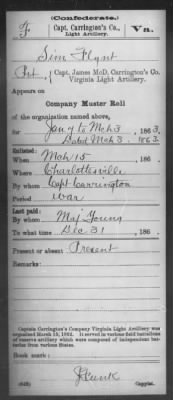 (Confederate.)
F. Capt. Carrington's Co., Va.
Light Artillery.
Sim Flynt
Pvt, Capt. James McD. Carrington's Co.
Virginia Light Artillery.
Appears on
Company Muster Roll
of the organization named above,
for Jan 7 to Mch 3, 1863.
Dated Mch 3 1863
Enlisted:
When Mch 15, 186 .
Where Charlottesville
By whom Capt Carrington
Period War
Last paid:
By whom Maj Young
To what time Dec 31, 186 .
Present or absent Present
Remarks:
Captain Carrington's Company Virginia Light Artillery was
organized March 1862. It served in various field battalions
of reserve artillery which were composed of independent batteries
from various States.
Book mark:
Copyist.